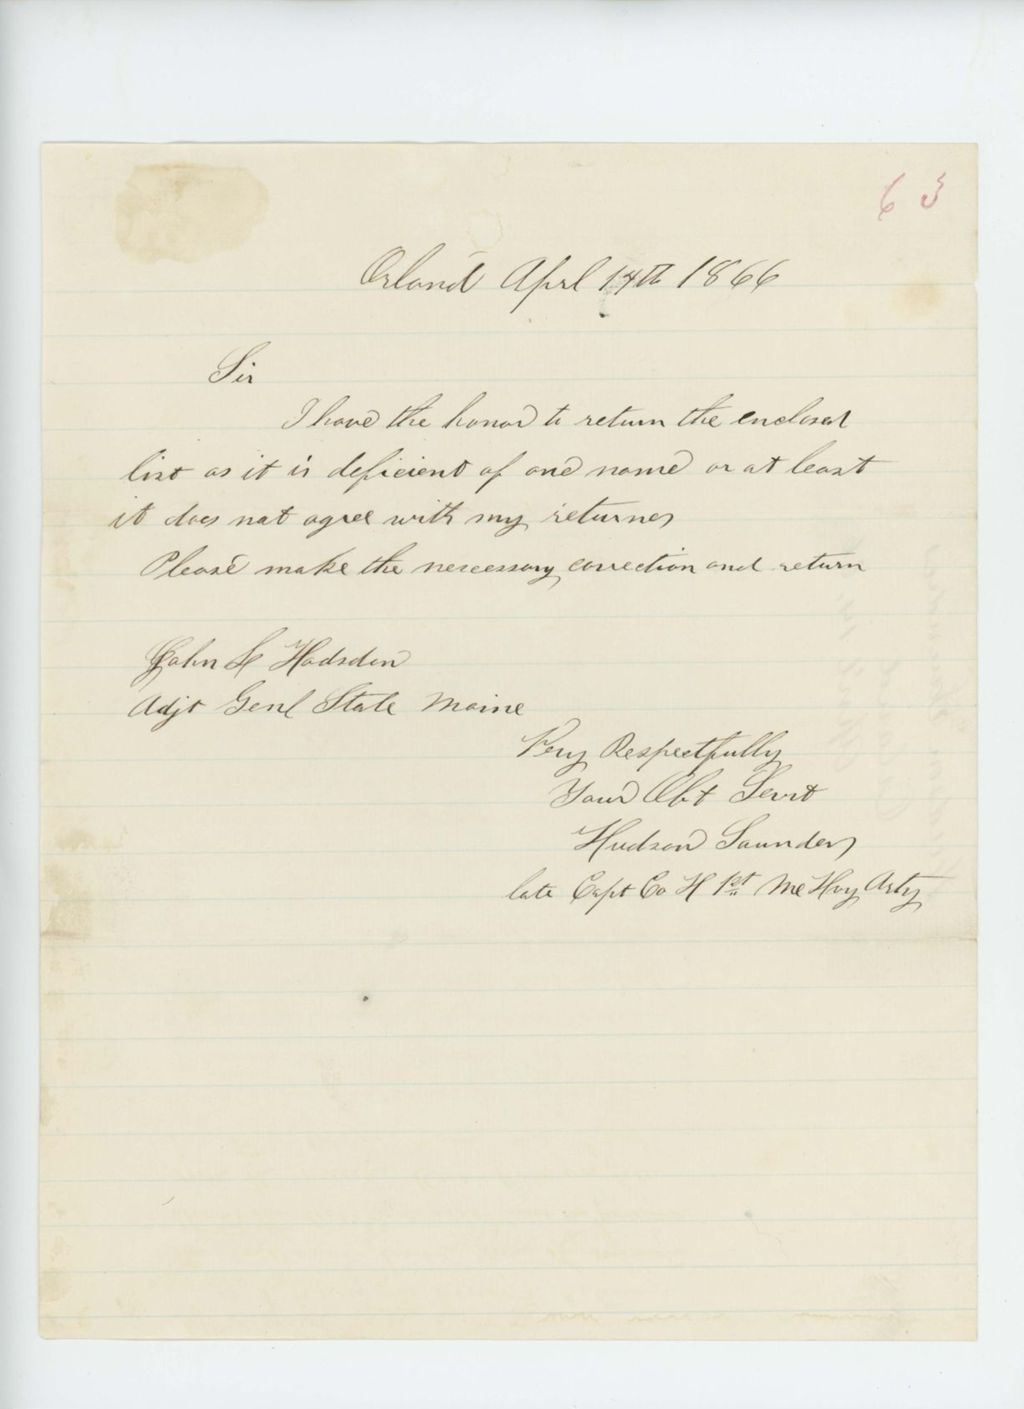 63
Orland Aprl 14th 1866
Sir
I have the honor to return the enclosed
list as it is deficient of one name or at least
it does not agree with my returnes
Please make the nescessary correction and return
John L Hodsdon
Adjt Genl State Maine
Very Respectfully
Your Obt Servt
Hudson Saunders
late Capt Co H 1st Me Hvy Arty